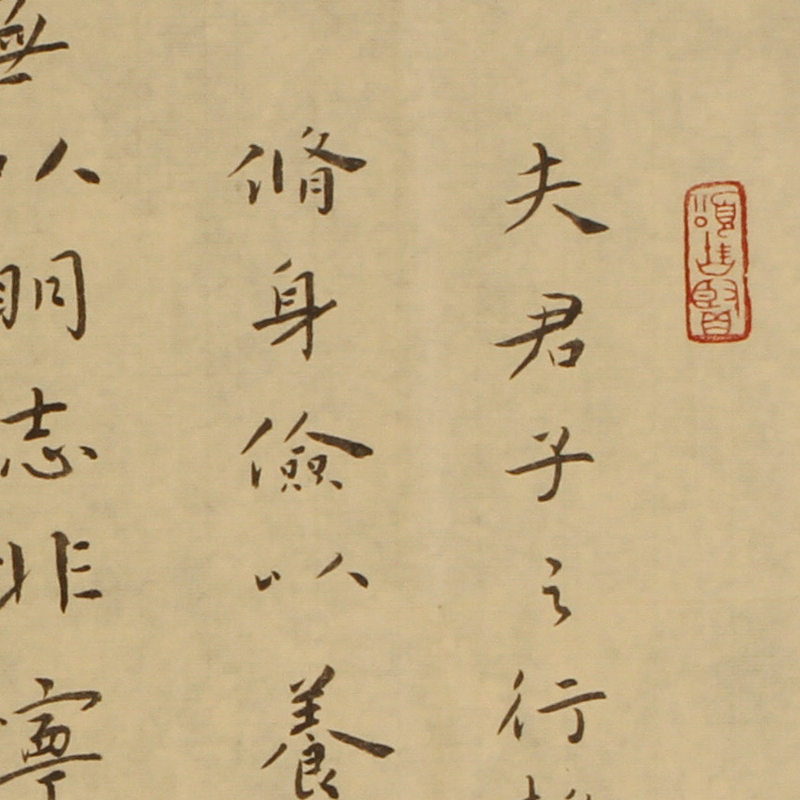 夫君子之行
脩身儉以養
無以明志非寧